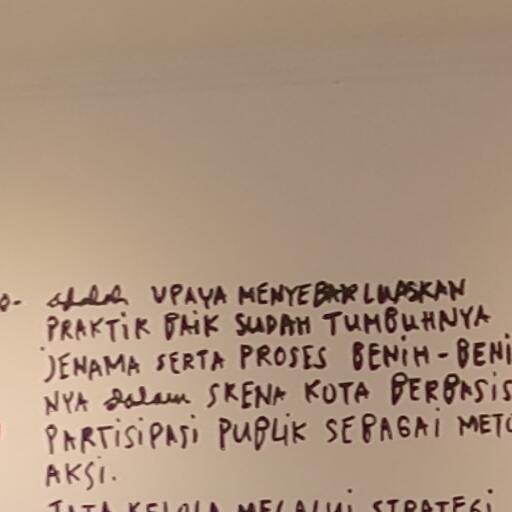 o- adalah UPAYA MENYEBARLUASKAN
PRAKTIK BAIK SUDAH TUMBUHNYA
JENAMA SERTA PROSES BENIH-BENI
NYA dalam SKENA KOTA BERBASIS
PARTISIPASI PUBLIK SEBAGAI METO
AKSI.
TATA KELOLA MELALUI STRATEGI